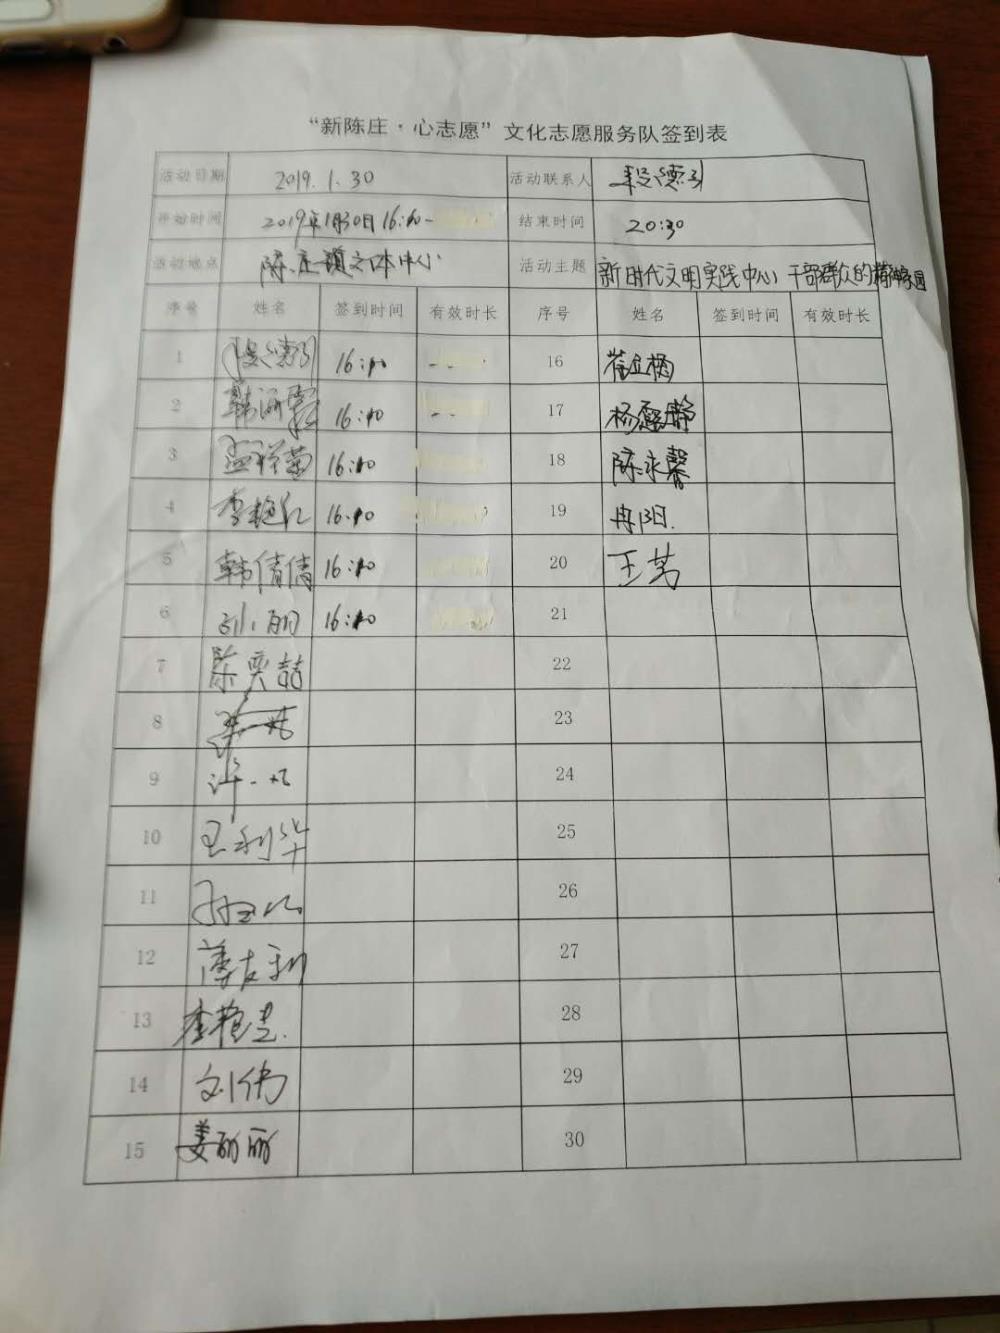 “新陈庄·心志愿”文化志愿服务队签到表
活动日期 2019.1.30 活动联系人
开始时间 2019年1月30日16:10- 结束时间 20:30
活动地点 陈庄镇文体中心 活动主题 新时代文明实践中心 干部群众的精神家园
序号 姓名 签到时间 有效时长 序号 姓名 签到时间 有效时长
1 16:10 -- 16
2 16:10 -- 17 杨静
3 16:10 18 陈永馨
4 李艳红 16:10 19 冉阳.
5 韩倩倩 16:10 20 王芳
6 孙丽 16:10 21
7 陈奕喆 22
8 23
9 许一凡 24
10 王利华 25
11 26
12 薄友利 27
13 李艳 28
14 刘伟 29
15 姜丽丽 30